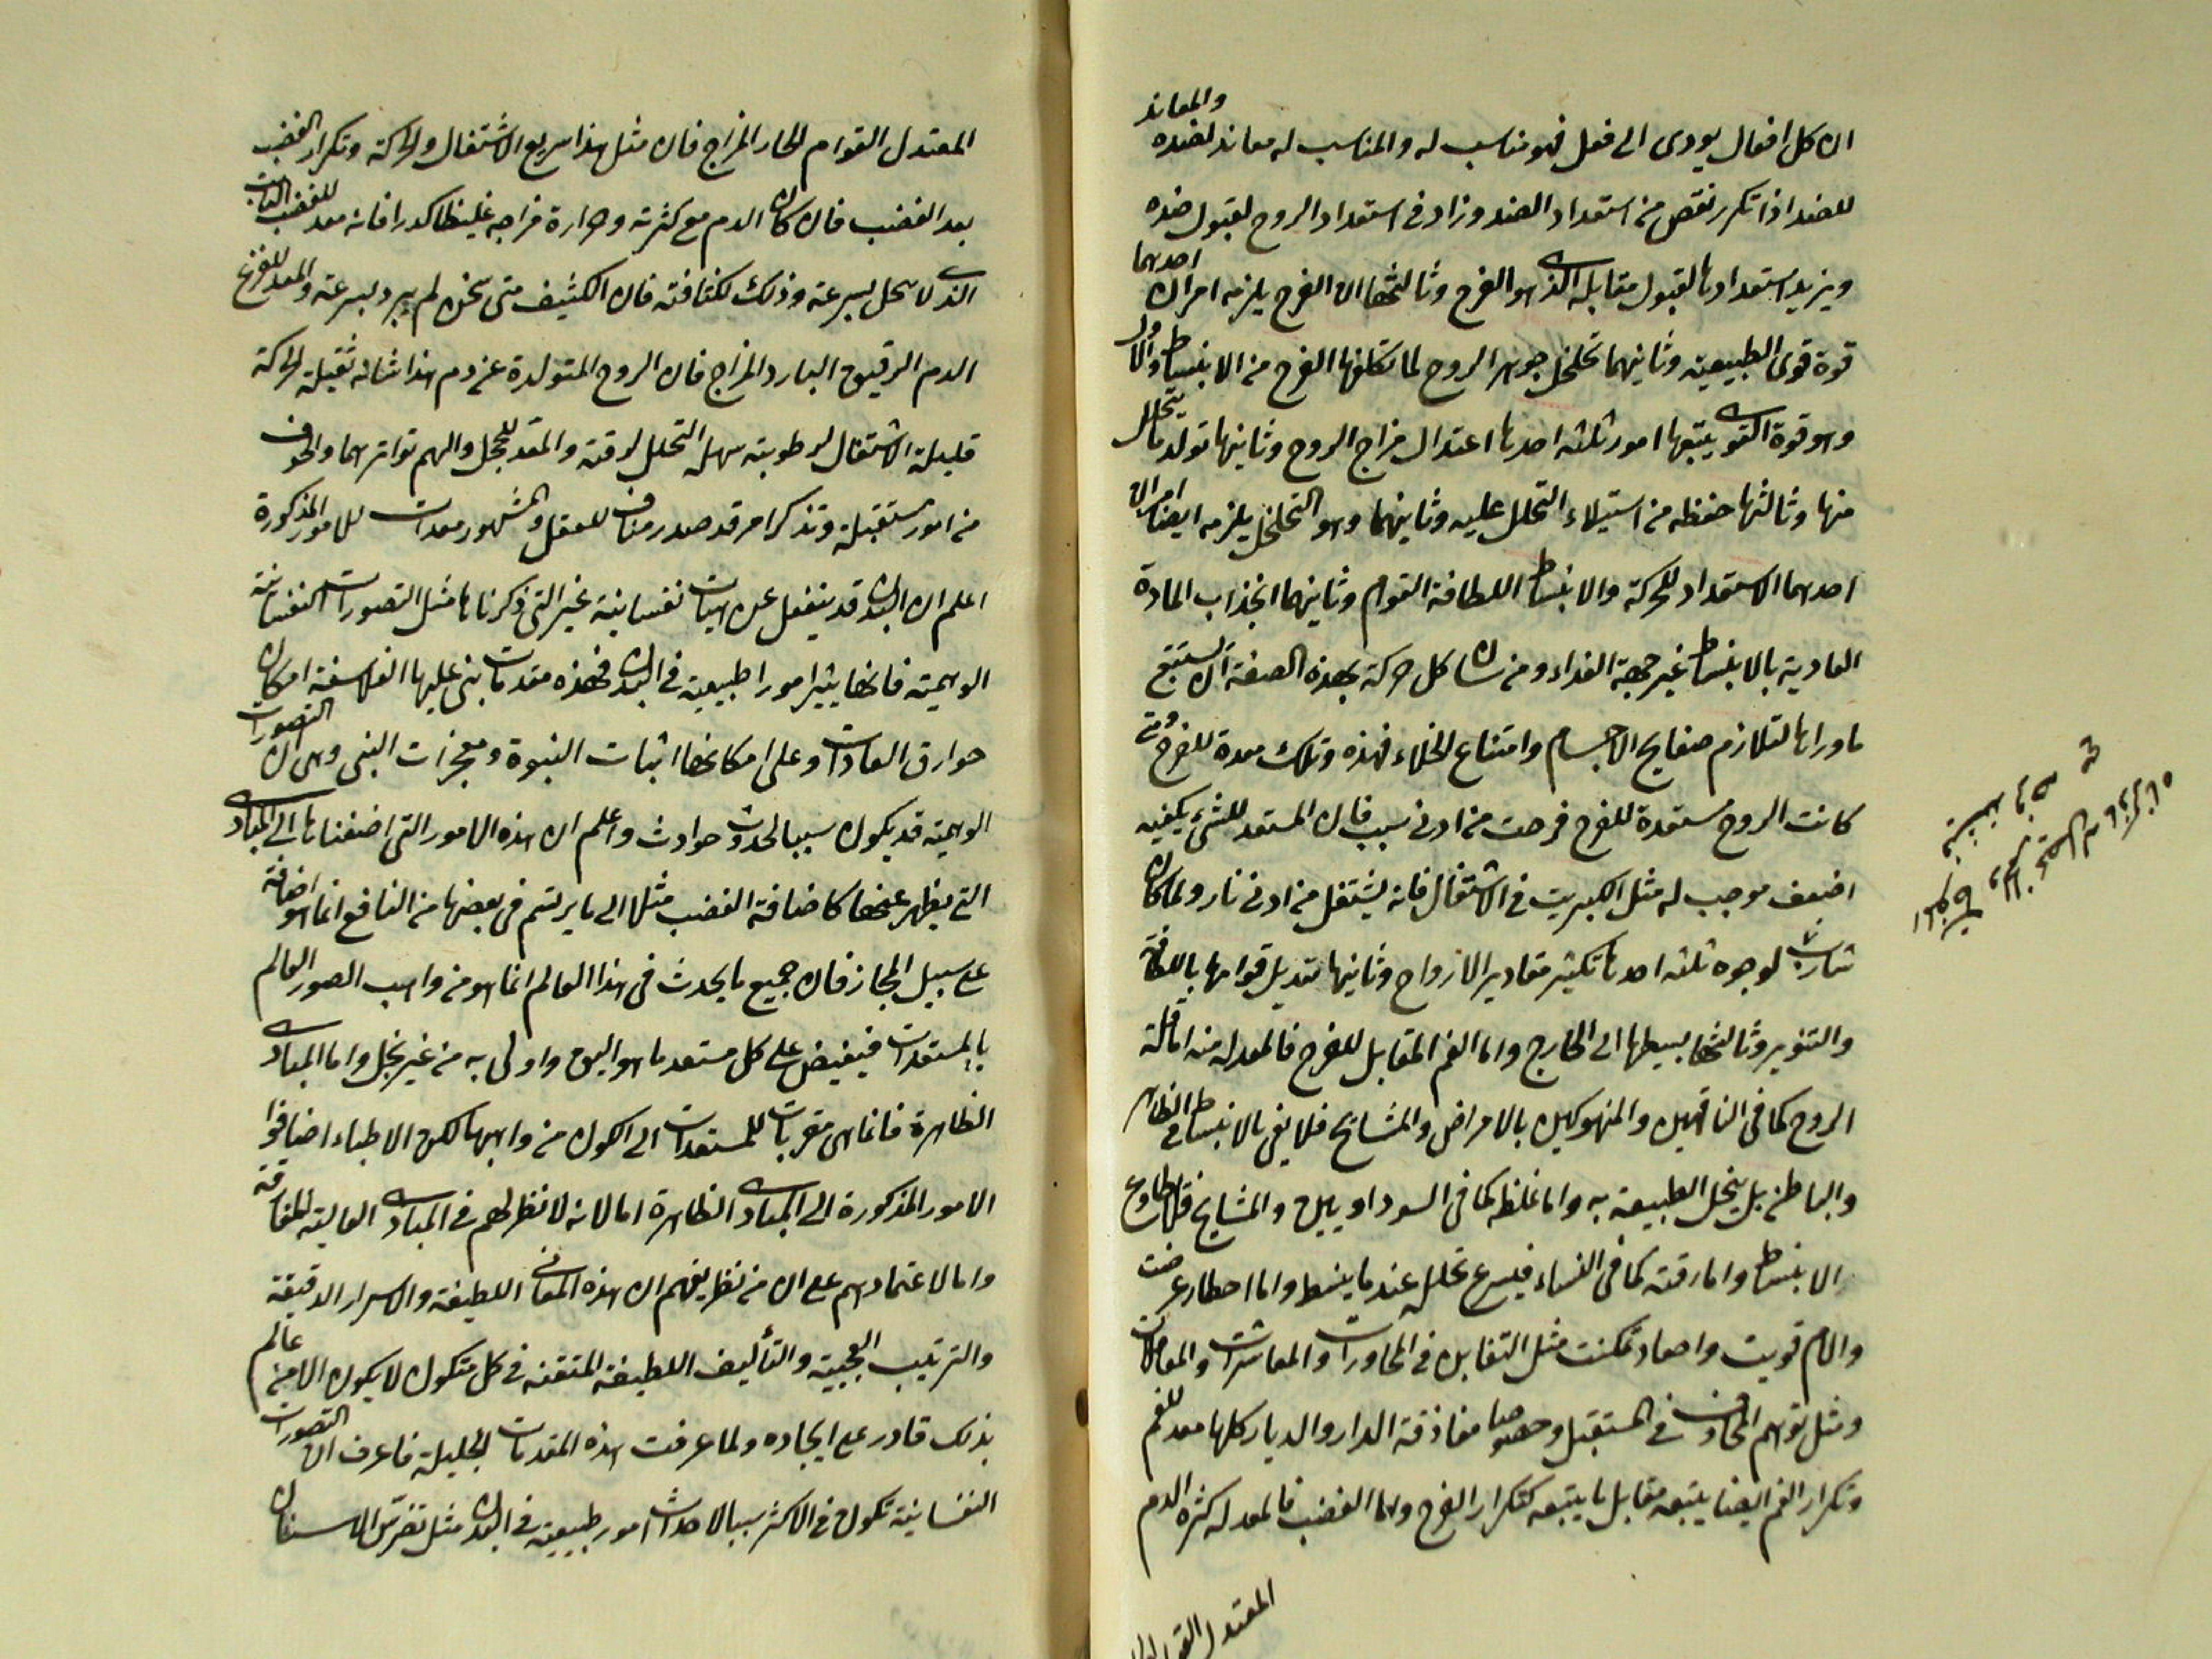 ان كل افعال يودى الى فعل فهو مناسب له والمناسب له معاند لضده والمعاند
للضد اذا تكرر نقص من استعداد الضد وزاد فى استعداد الروح لقبول ضده
ويزيد استعدادها لقبول مقابله الذى هو الفرح وثالثها ان الفرح يلزمه امران احدهما
قوة قوى الطبيعية وثانيهما تخلخل جوهر الروح لما تكلفها الفرح من الانبساط والاول
وهو قوة القوى يتبعها امور ثلثه احدها اعتدال مزاج الروح وثانيها تولد ما يتحلل
منها وثالثها حفظه من استيلاء التحلل عليه وثانيهما وهو التخلخل يلزمه ايضا امران
احدهما الاستعداد للحركة والانبساط اللطافة القوام وثانيهما انجذاب المادة
العادية بالانبساط غير جهة الغذاء ومن شان كل حركة بهذه الصفة ان يستتبع
ما وراءها لتلازم صفايح الاجسام وامتناع الخلاء فهذه وتلك معدة للفرح ومتى
كانت الروح مستعدة للفرح فرحت من ادنى سبب فان المستعد للشئ يكفيه
اضعف موجب له مثل الكبريت فى الاشتعال فانه يشتعل من ادنى نار ولما كان
شارب لوجوه ثلثه احدها تكثير مقادير الارواح وثانيها تعديل قوامها باللطافة
والتنوير وثالثها بسيطها الى الخارج واما الغم المقابل للفرح فالمعد له منه اما قلة
الروح كما فى الناقهين والمنهوكين بالامراض والمشايخ فلا يفى بالانبساط فى الظاهر
والباطن بل يبخل الطبيعة به واما غلظه كما فى السوداويين والمشايخ فلا يطاوع
الانبساط واما رقته كما فى النساء فيسرع تحلل عند ما ينبسط واما اخطار عرضت
والام قويت واحقاد تمكنت مثل التغابن فى المحاورات والمعاشرات والمعاملات
ومثل توهم المخاوف فى المستقبل وخصوصا مفارقة الدار والديار كلها معد للغم
وتكرار الغم ايضا يتبعه مقابل ما يتبعه كتكرار الفرح واما الغضب فالمعد له كثرة الدم
المعتدل القوام
المعتدل القوام الحار المزاج فان مثل هذا سريع الاشتعال والحركة وتكرار الغضب
بعد الغضب فان كان الدم مع كثرته وحرارة مزاجه غليظا كدرا فانه معد للغضب الثابت
الذى لا ينحل بسرعة وذلك لكثافته فان الكثيف متى سخن لم يبرد بسرعة والمعد للفزع
الدم الرقيق البارد المزاج فان الروح المتولدة عن دم هذا شانه ثقيلة الحركة
قليلة الاشتعال لرطوبته سهلة التحلل لرقته والمعد للخجل والهم تواترهما والخوف
من امور مستقبلة وتذكر امر قد صدر مناف للعقل والمشهور معدات للامور المذكورة
اعلم ان البدن قد ينفعل عن هيات نفسانية غير التى ذكرناها مثل التصورات النفسانية
الوهمية فانها يثير امورا طبيعية فى البدن فهذه مقدمات بنى عليها الفلاسفة امكان
خوارق العادات وعلى امكانها اثبات النبوة ومعجزات النبى وهى ان التصورات
الوهمية قد يكون سببا لحدوث حوادث واعلم ان هذه الامور التى اضفناها الى المبادى
التى يظهر عنها كاضافة الغضب مثلا الى ما يرتسم فى بعضها من النافع انما هو اضافة
على سبيل المجاز فان جميع ما يحدث فى هذا العالم انما هو من واهب الصور العالم
بالمستعدات فيفيض على كل مستعد ما هو اليق واولى به من غير بخل واما المبادى
الظاهرة فانما هى مقربات للمستعدات الى الكون من واهبها لكن الاطباء اضافوا
الامور المذكورة الى المبادى الظاهرة اما لانه لا نظر لهم فى المبادى العالية المفارقة
واما لاعتمادهم على ان من نظر يفهم ان هذه المعانى اللطيفة والاسرار الدقيقة
والترتيب العجيبة والتأليف اللطيفة المتقنة فى كل متكون لا يكون الا من عالم
بذلك قادر على ايجاده ولما عرفت هذه المقدمات الجليلة فاعرف ان التصورات
النفسانية تكون فى الاكثر سببا لاحداث امور طبيعية فى البدن مثل تضرس الاسنان